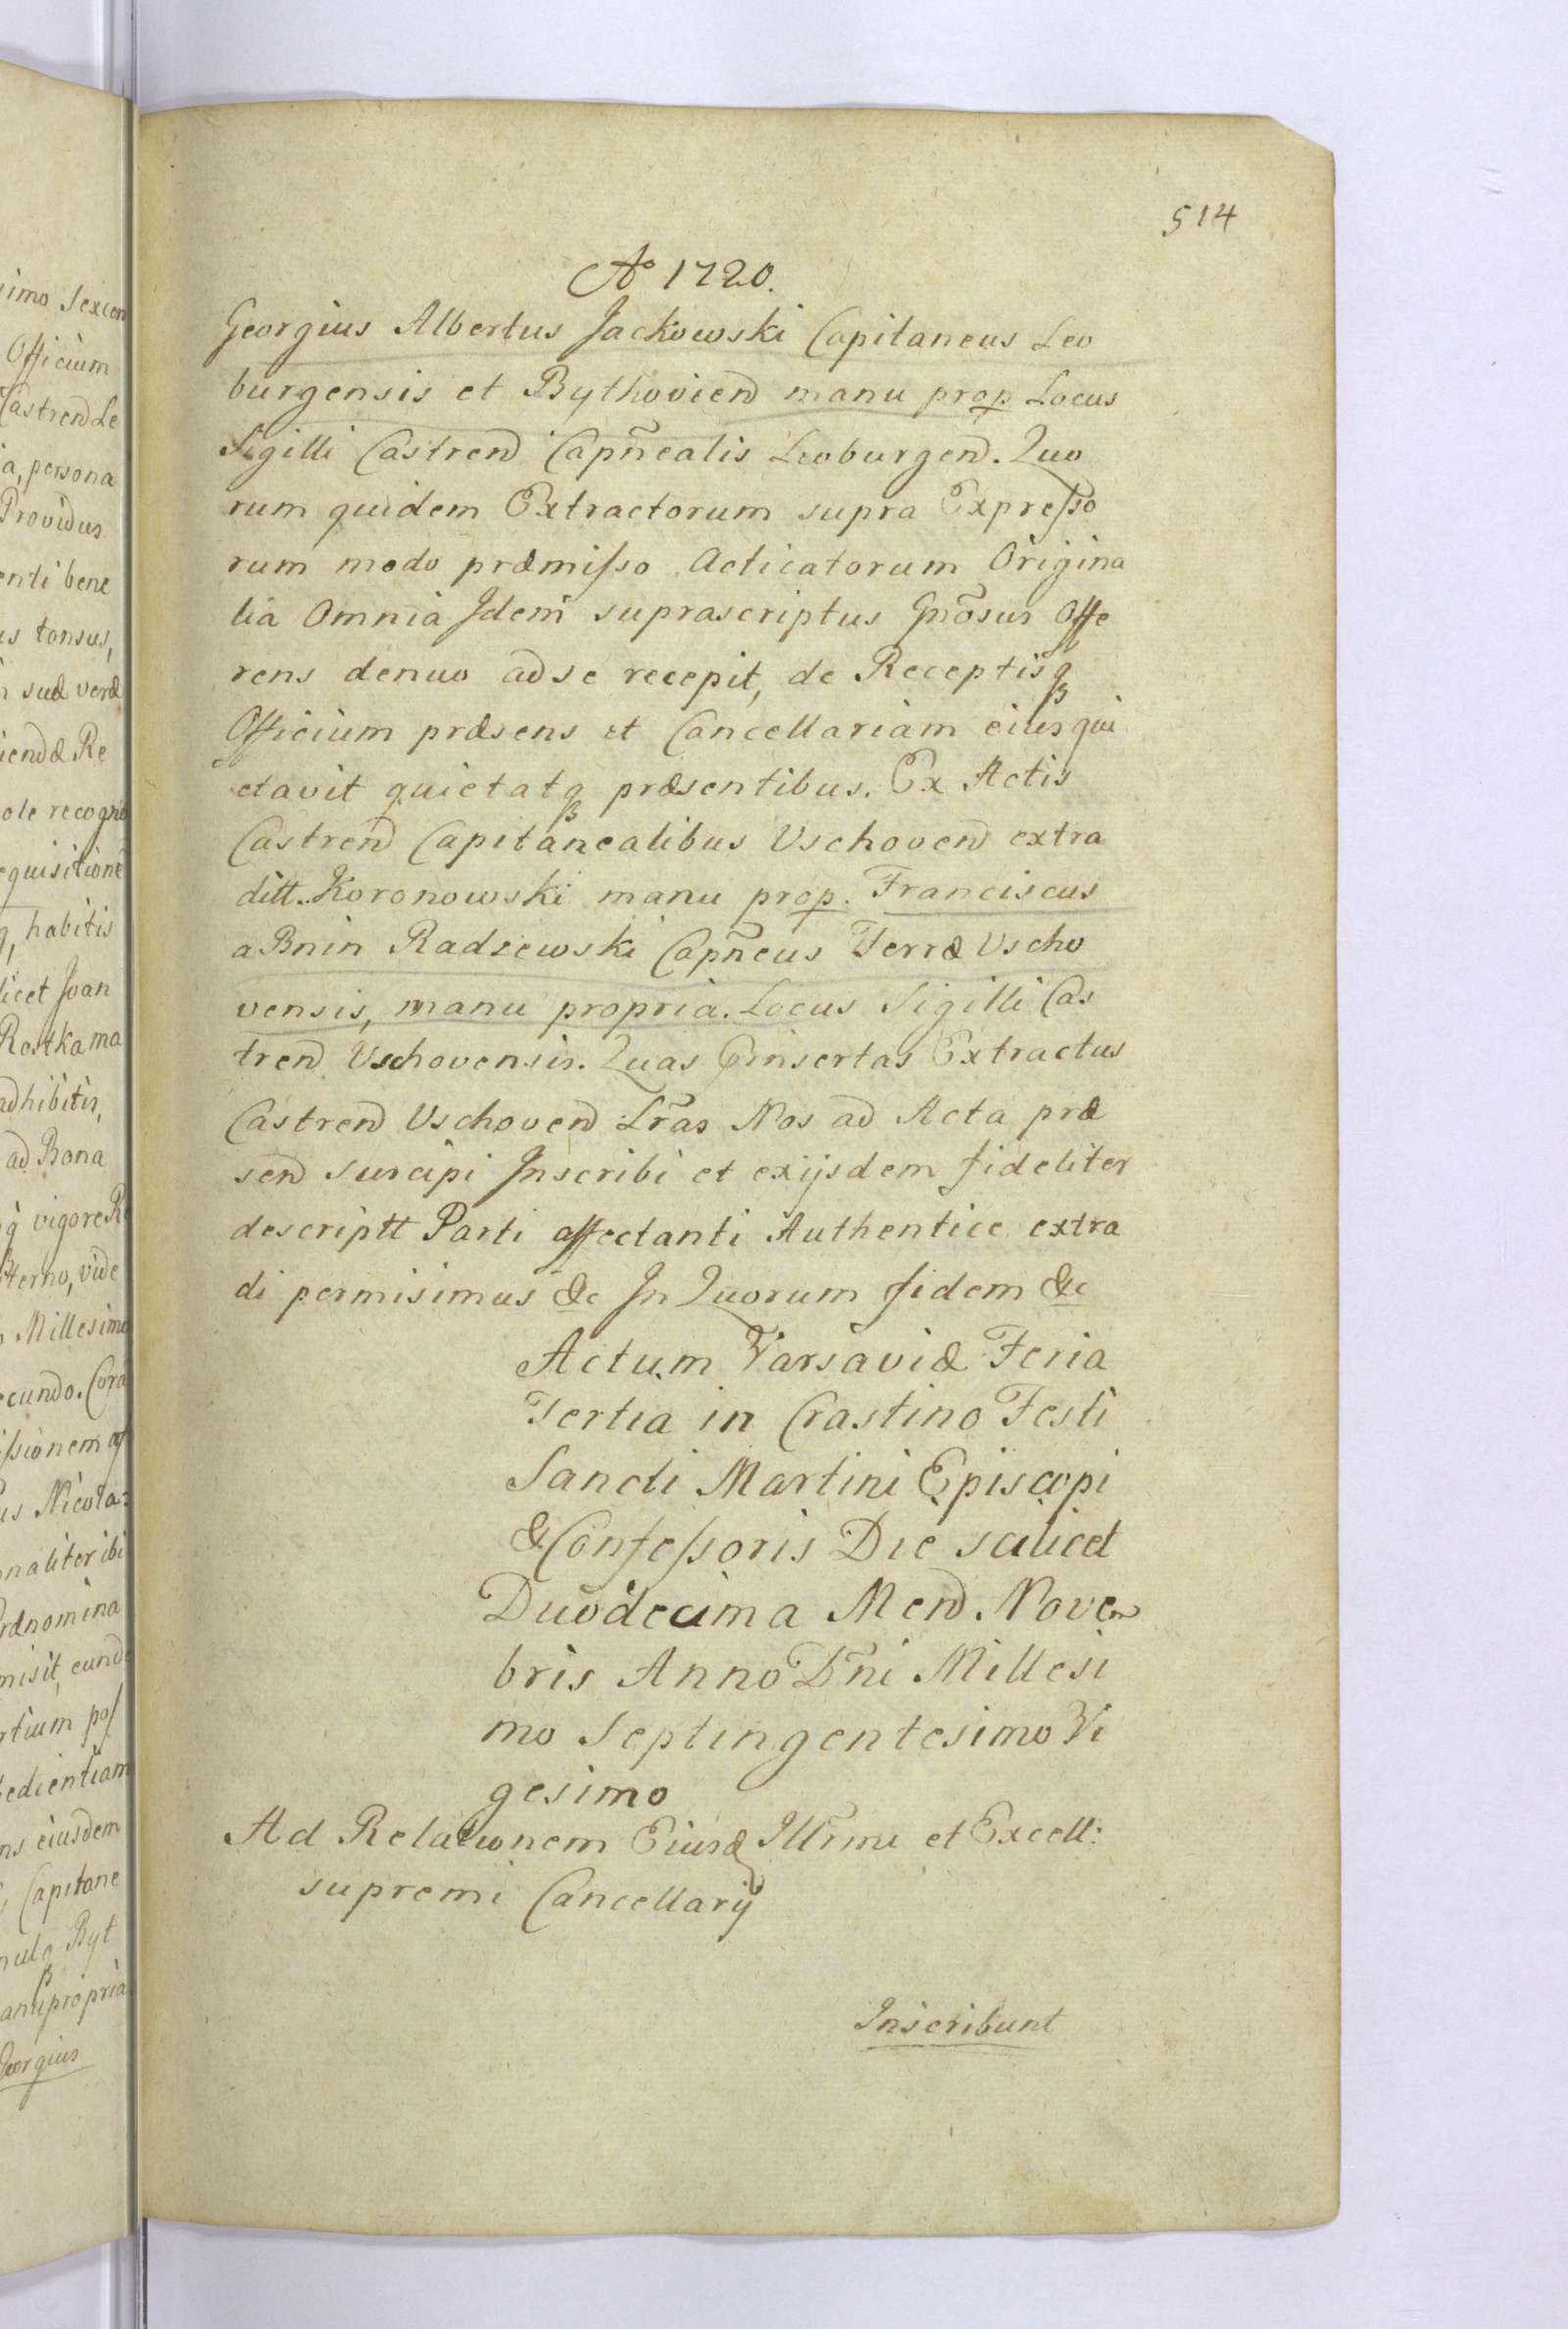 514
Aº 1720.
Georgius Albertus Jackowski Capitaneus Leo
burgensis et Bythovien̄ manu prop Locus
Sigilli Castren̄ Capn̄ealis Leoburgen̄. Quo
rum quidem Extractorum supra Expreſso
rum modo præmiſso Acticatorum Origina
lia Omnia Idem suprascriptus Gn̄osus Offe
rens denuo ad se recepit, de Receptisqꝫ
Officium præsens et Cancellariam eius qui
etavit quietatqꝫ præsentibus. Ex Actis
Castren̄ Capitanealibus Vschoven̄ extra
ditt. Koronowski manu prop. Franciscus
a Bnin Radzewski Capn̄eus Terræ Vscho
vensis, manu propria. Locus Sigilli Cas
tren̄ Vschovensis. Quas p̱insertas Extractus
Castren̄ Vschoven̄ Lr̄as Nos ad Acta præ
sen̄ suscipi Inscribi et exijsdem fideliter
descriptt Parti affectanti Authentice extra
di permisimus &c In Quorum fidem &c
Actum Varsaviæ Feria
Tertia in Crastino Festi
Sancti Martini Episcopi
& Confeſsoris Die scilicet
Duodecima Men̄. Novem
bris Anno Dn̄i Millesi
mo Septingentesimo Vi
gesimo
Ad Relationem Eiusd Illr̄mi et Excell:
supremi Cancellarij
Inscribunt
imo sexcen
Officium
Castren̄ Le
a, persona
Providus
enti bene
us tonsus,
suæ veræ
iendæ Re
ole recogno
equisitione
habitis
licet Joan
Rostka ma
adhibitis,
ad Bona
vigore Re
terno, vide
Millesimo
ecundo. Corā
iſsionem
us Nicola:
naliter ibi
rænomina
misit, eund
rtium poſ
edientiam
ns eiusdem
Capitane
Byt
anu propria
Georgius